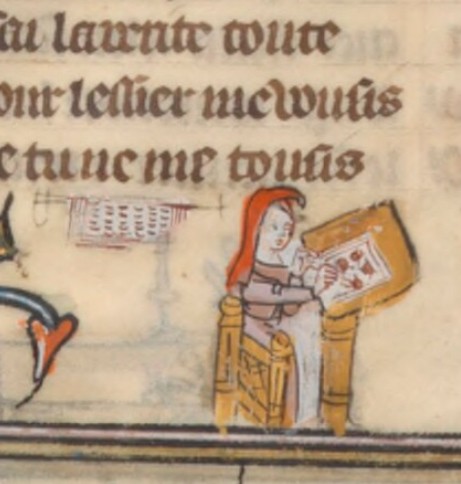 sai la rente toute
our lessier me vousis
e tu ne me tousis